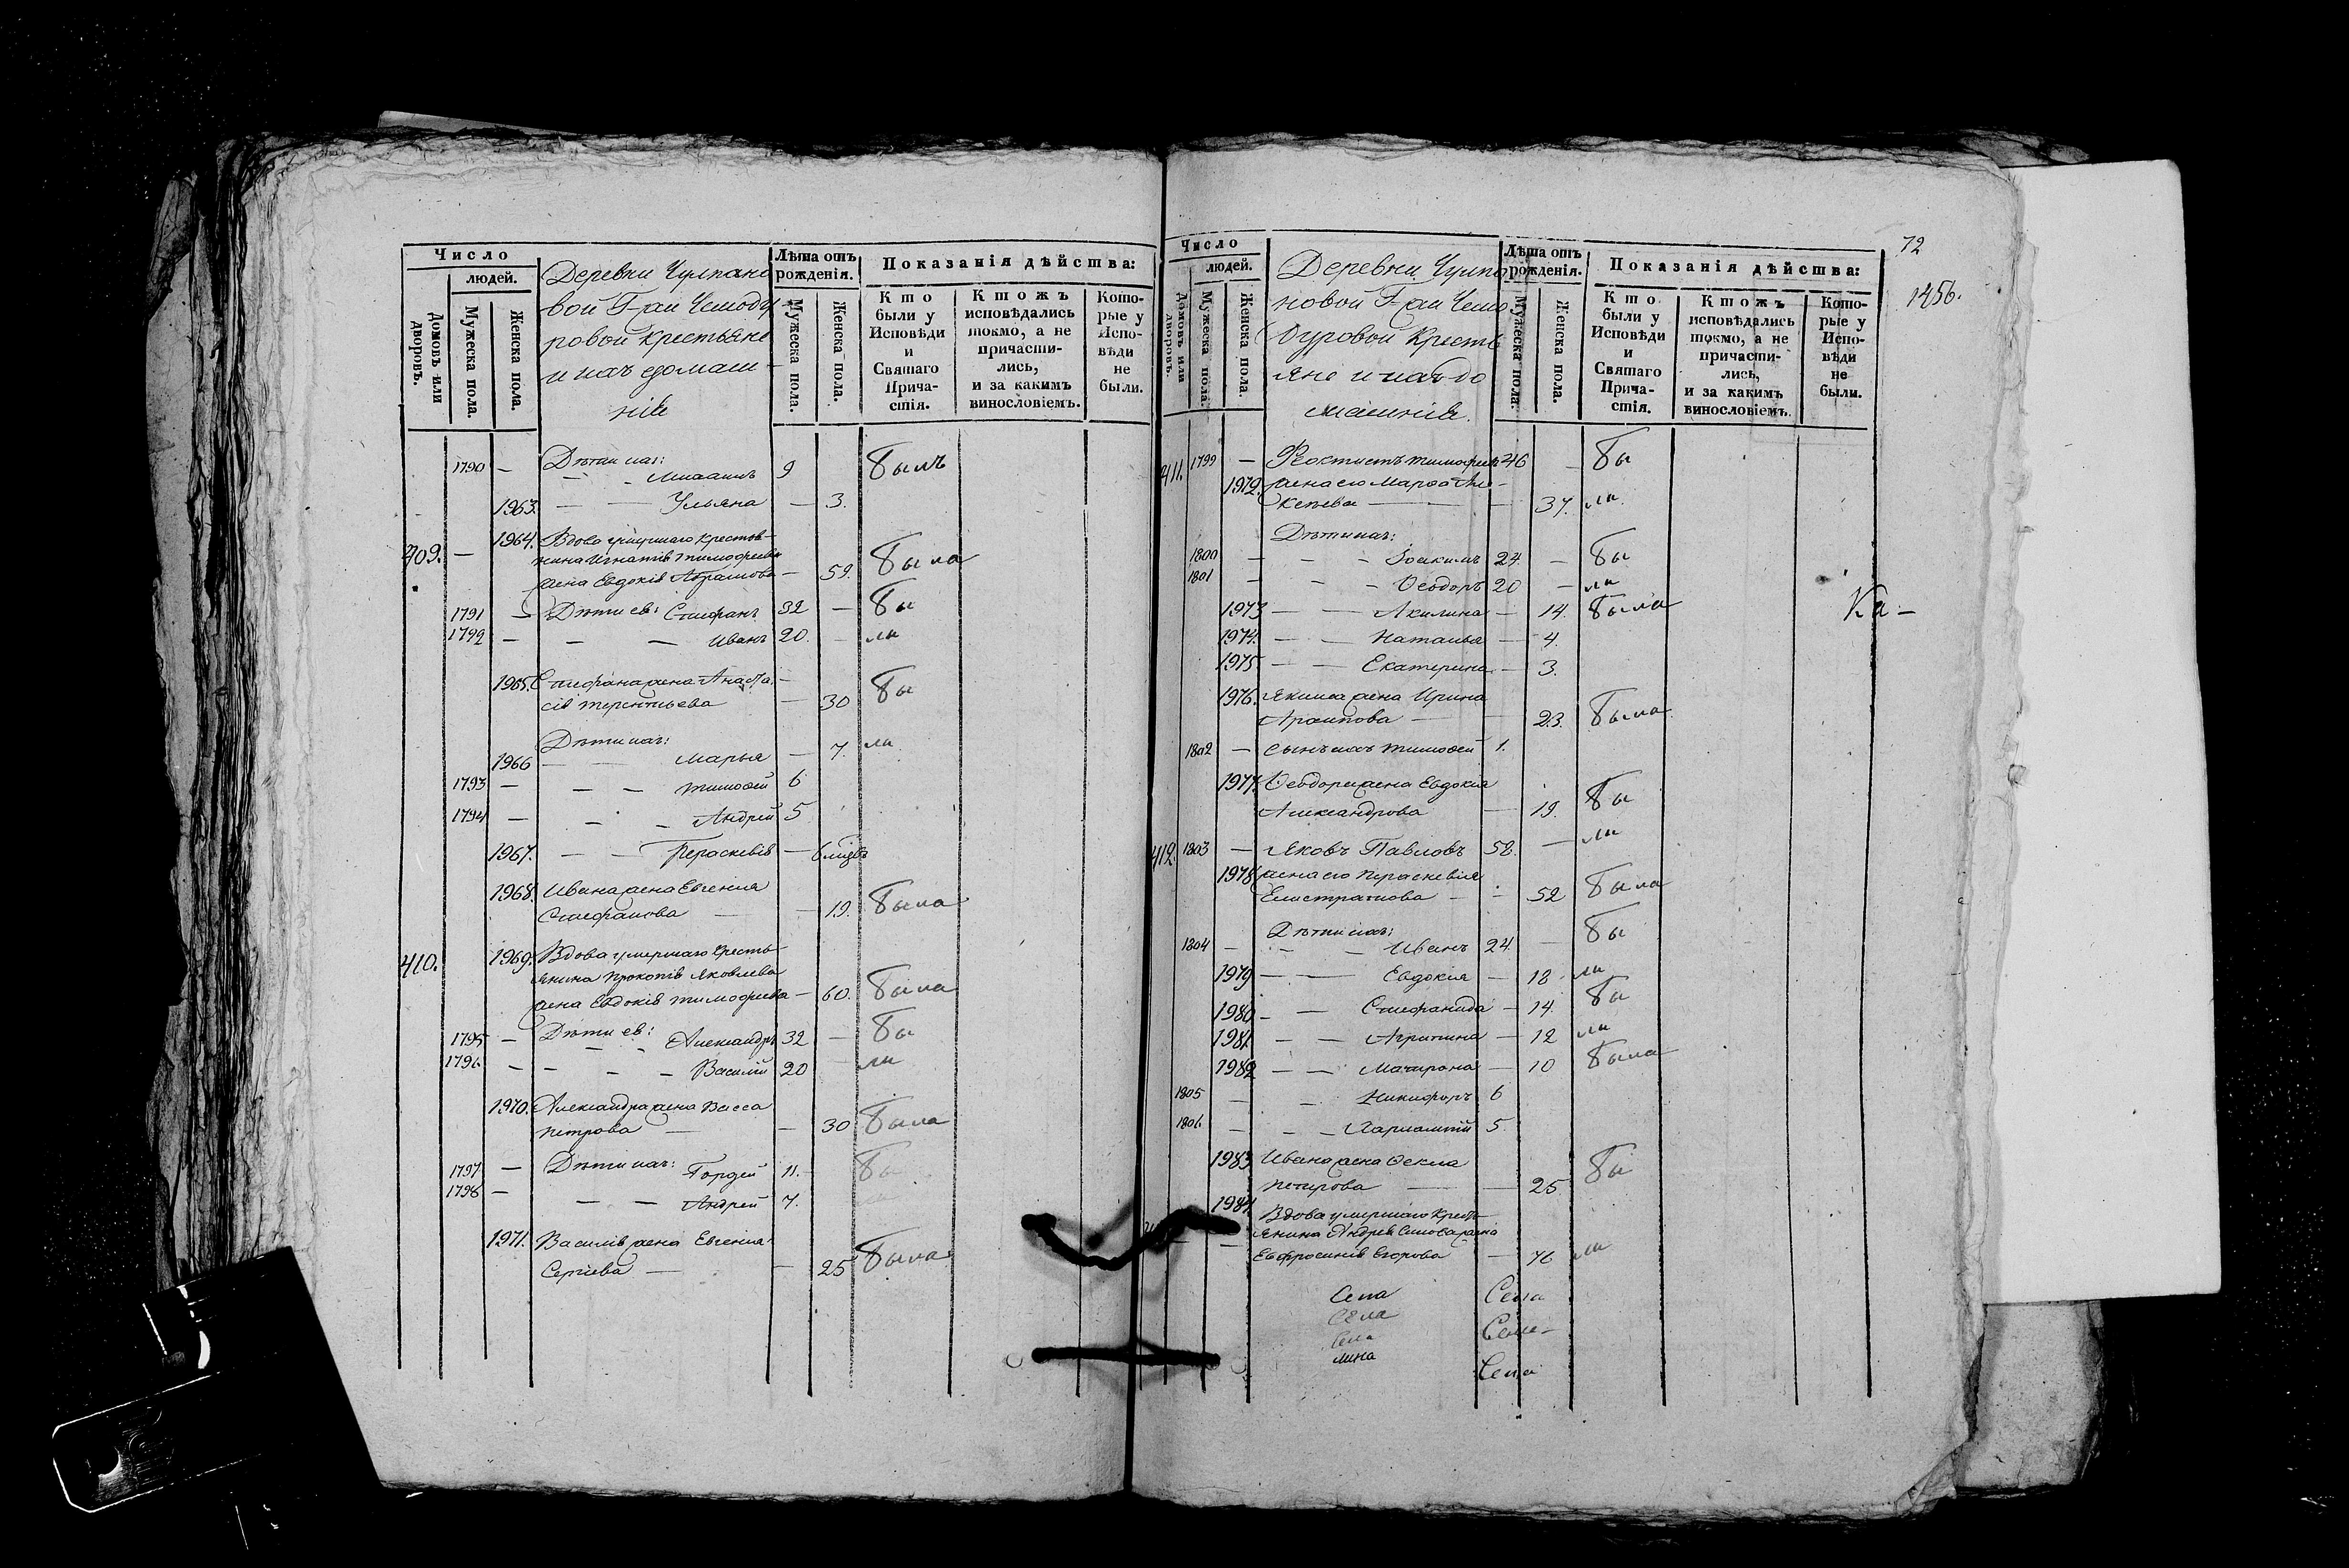 Число
людей.
Домовъ или дворовъ.
Мужеска пола.
Женска пола.
Деревни Чулпано
вой Г-жи Чемоду
ровой крестьяне
и ихъ домаш-
нiе
Лѣта отъ рожденія.
Мужеска пола.
Женска пола.
Показанія дѣйства:
Кто были у Исповѣди и Святаго Прича-стія.
Ктожъ исповѣдались токмо, а не причасти-лись, и за какимъ винословіемъ.
Кото-рые у Испо-вѣди не были.
1790 — Дѣти ихъ:
— — Михаилъ 9 Былъ
1963. — — Ульяна — 3.
409. — 1964. Вдова умершаго крестья-
нина Игнатiя Тимофеева
жена Евдокiя Абрамова — 59. Была
1791 — Дѣти ея: Стефанъ 32 — Бы
1792 — — — Иванъ 20. — ли
1965. Стефана жена Анаста-
сiя Терентьева — 30 Бы
Дѣти ихъ:
1966 — — Марья — 7. ли
1793 — — — Тимофей 6
1794 — — — Андрей 5
1967. — — Пераскевiя — 6 мѣся
1968. Ивана жена Евгенiя
Стефанова — — 19. Была
410. 1969. Вдова умершаго кресть-
янина Прокопiя Яковлева
жена Евдокiя Тимофеева — 60. Была
1795 — Дѣти ея:
— — Александръ 32 — Бы
1796 — — — — Василiй 20 — ли
1970. Александра жена Васса
Петрова — — 30 Была
1797 — Дѣти ихъ: Гордей 11. Бы
1798 — — — Андрей 7. ли
1971. Василiя жена Евгенiя
Сергiева — — 25 Была
72
1456.
Число
людей.
Домовъ или дворовъ.
Мужеска пола.
Женска пола.
Деревни Чулпа
новой Г-жи Чемо
дуровой Кресть
яне и ихъ до
машнiе.
Лѣта отъ рожденія.
Мужеска пола.
Женска пола.
Показанія дѣйства:
Кто были у Исповѣди и Святаго Прича-стія.
Ктожъ исповѣдались токмо, а не причасти-лись, и за какимъ винословіемъ.
Кото-рые у Испо-вѣди не были.
411. 1799 — Феоктистъ Тимофеевъ 46 — Бы
1972. жена его Марфа Але-
ксѣева — — 37. ли
Дѣти ихъ:
1800 — — — Iоакимъ 24. — Бы
1801 — — — Ѳеодоръ 20 — ли
1973 — — Акилина — 14. Была
Ка-
1974. — — Наталья — 4.
1975 — — Екатерина — 3.
1976. Якима жена Ирина
Архипова — — 23. Была
1802 — сынъ ихъ Тимофей 1.
1977. Ѳеодора жена Евдокiя
Александрова — 19. Бы
412. 1803 — Яковъ Павловъ 58. — ли
1978 жена его Пераскевiя
Елистратова — — 52 Была
Дѣти ихъ:
1804 — — — Иванъ 24. — Бы
1979 — — Евдокiя — 18 ли
1980 — — Стефанида — 14. Бы
1981. — — Агрипина — 12 ли
1982 — — Матрона — 10 Была
1805 — — Никифоръ 6
1806 — — — Харлампiй 5.
1983 Ивана жена Ѳекла
Петрова — — 25 Бы
1984. Вдова умершаго Кресть-
янина Андрея жена
Евфросинiя Егорова — 76 ли
Села Села
Села
Села
лина
Села